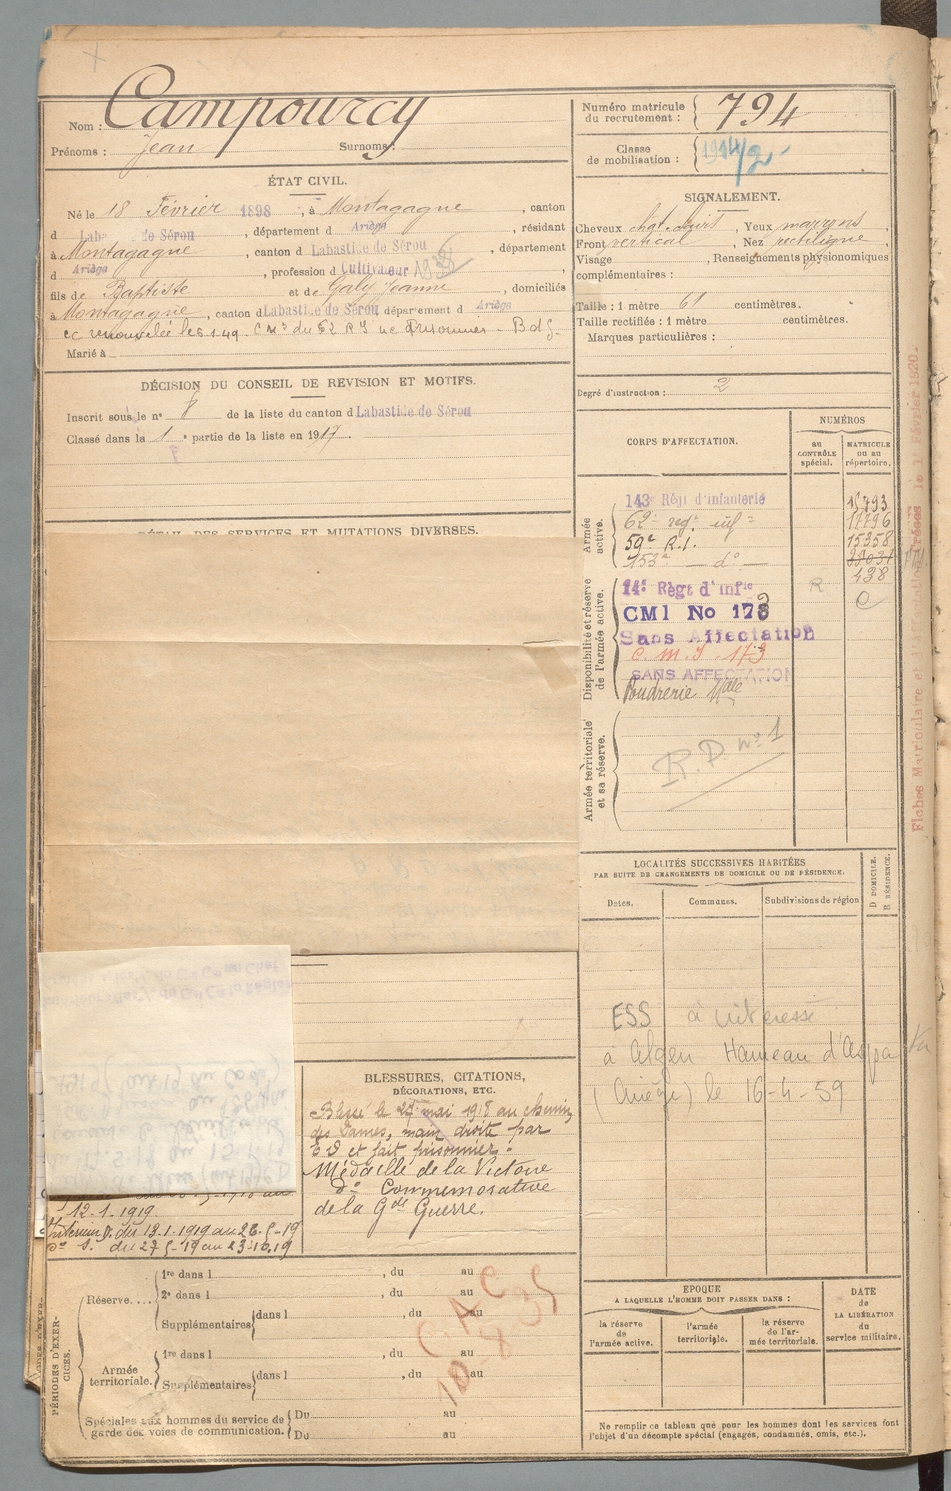 Nom : Campourcy
Prénoms : Jean Surnoms :
Numéro matricule du recrutement : 794
Classe de mobilisation : 1914/2
ÉTAT CIVIL.
Né le 18 Février 1898, à Montagagne, canton
d Labastide de Sérou, département d Ariège, résidant
à Montagagne, canton d Labastide de Sérou, département
d Ariège, profession d Cultivateur
fils de Baptiste et de Galy Jeanne, domiciliés
à Montagagne, canton d Labastide de Sérou département d Ariège
Marié à
DÉCISION DU CONSEIL DE REVISION ET MOTIFS.
Inscrit sous le n° 8 de la liste du canton d Labastide de Sérou
Classé dans la 1 e partie de la liste en 1917.
DÉTAIL DES SERVICES ET MUTATIONS DIVERSES.
SIGNALEMENT.
Cheveux chat. clairs, Yeux marrons,
Front vertical, Nez rectiligne,
Visage , Renseignements physionomiques
complémentaires :
Taille : 1 mètre 61 centimètres.
Taille rectifiée : 1 mètre centimètres.
Marques particulières :
Degré d'instruction : 2
CORPS D'AFFECTATION.
NUMÉROS
au CONTRÔLE spécial.
MATRICULE ou au répertoire.
Armée active.
143e Régt d'infanterie 15793
62e regt inf 17796
59e R.I. 15358
153e — do —
438
Disponibilité et réserve de l'armée active.
14e Régt d'Infie R
CMI No 173
Sans Affectation
C.M.I. 173
SANS AFFECTATION
Poudrerie Nale
Armée territoriale et sa réserve.
R.D. no 1
Fiches Matriculaire et
le 1er Février 1920.
LOCALITÉS SUCCESSIVES HABITÉES
PAR SUITE DE CHANGEMENTS DE DOMICILE OU DE RÉSIDENCE.
Dates. Communes. Subdivisions de région
D DOMICILE. R RÉSIDENCE.
ESS à intéressé
à Algen Hameau d'Aspa
(Ariège) le 16-4-59
BLESSURES, CITATIONS,
DÉCORATIONS, ETC.
Blessé le 27 mai 1918 au chemin
des Dames, main droite par
E O et fait prisonnier.
Médaille de la Victoire
do Commemorative
de la Gde Guerre.
12-1-1919
Intérieur D. du 13-1-1919 au 26-5-19
do S. du 27-5-19 au 23-10-19
PÉRIODES D'EXERCICES.
Réserve....
1re dans l , du au
2e dans l , du au
Supplémentaires dans l , du au
Armée territoriale.
1re dans l , du au
Supplémentaires dans l , du au
CAC
10-8-35
Spéciales aux hommes du service de garde des voies de communication.
Du au
Du au
EPOQUE
A LAQUELLE L'HOMME DOIT PASSER DANS :
la réserve de l'armée active.
l'armée territoriale.
la réserve de l'armée territoriale.
DATE de LA LIBÉRATION du service militaire.
Ne remplir ce tableau que pour les hommes dont les services font
l'objet d'un décompte spécial (engagés, condamnés, omis, etc.).